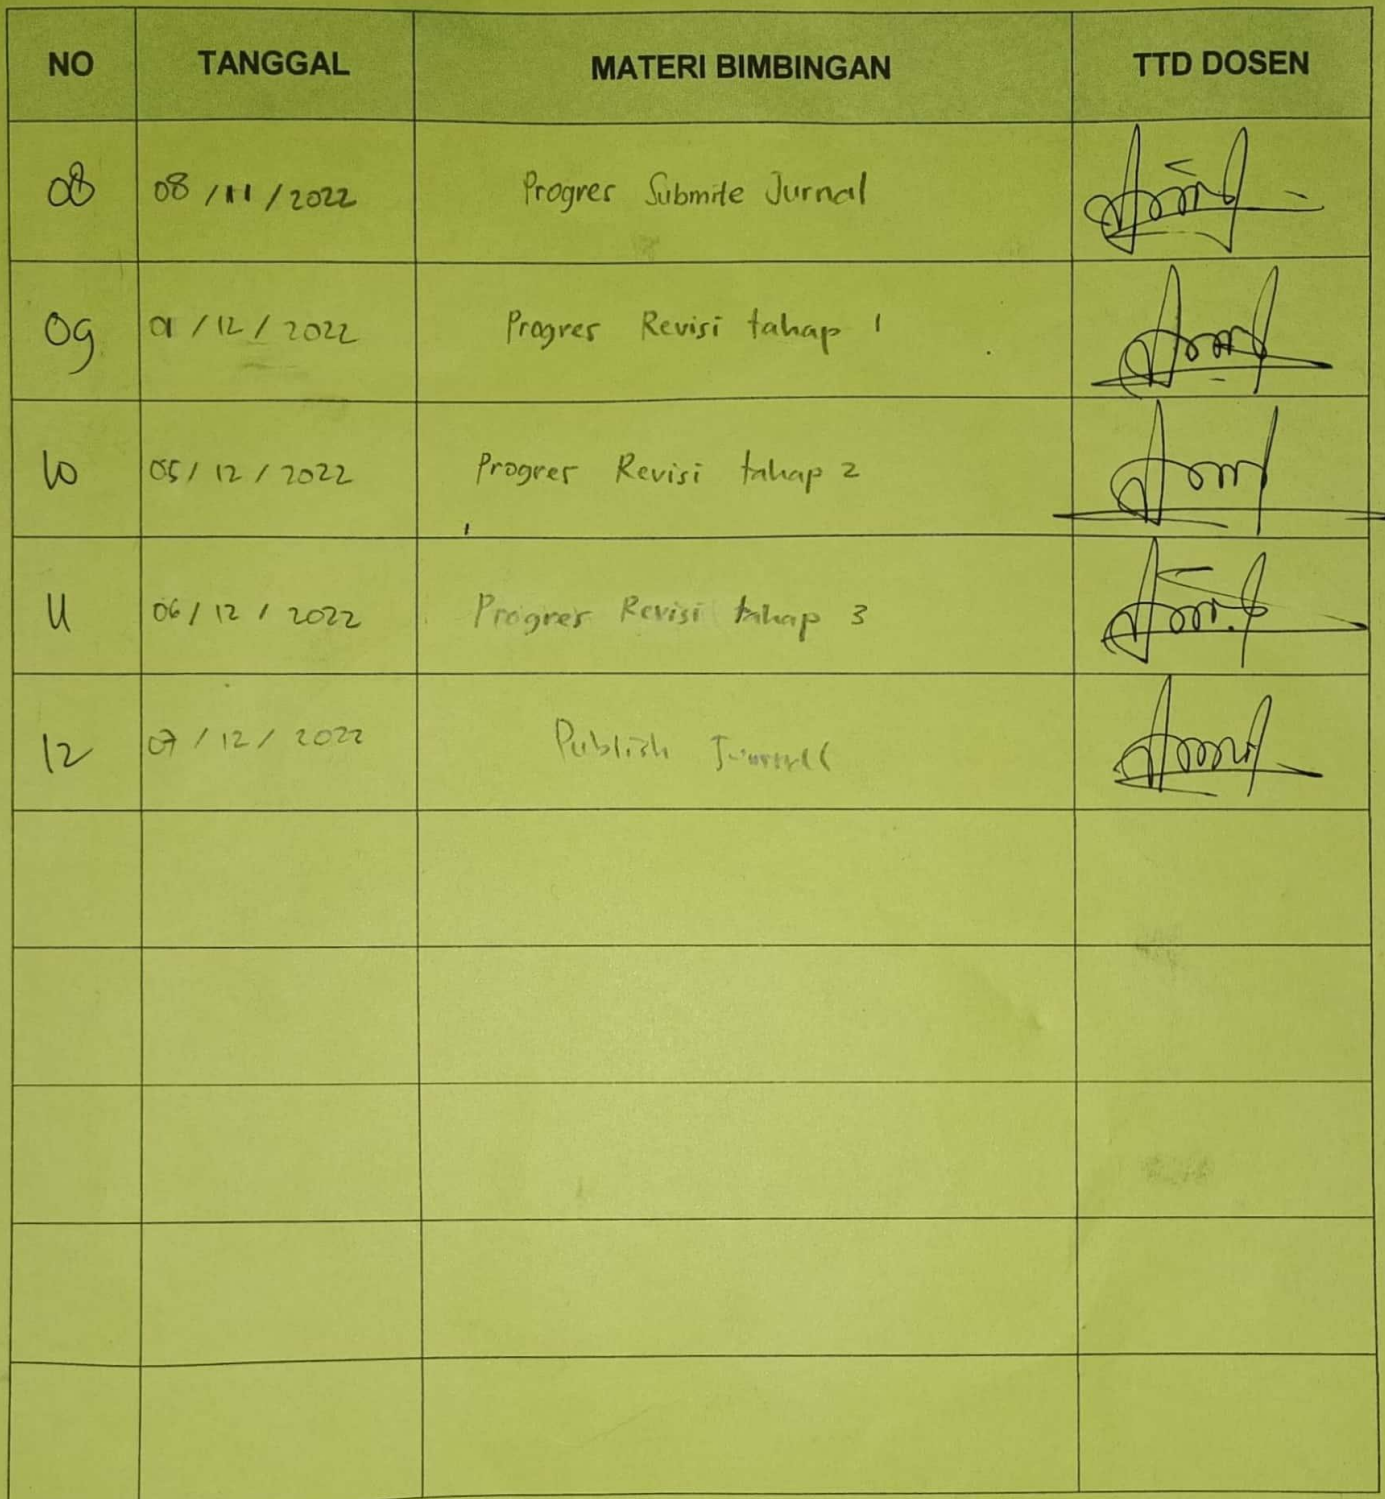 NO TANGGAL MATERI BIMBINGAN TTD DOSEN
08 08/11/2022 Progres Submite Jurnal
09 01/12/2022 Progres Revisi tahap 1
10 05/12/2022 Progres Revisi tahap 2
11 06/12/2022 Progres Revisi tahap 3
12 07/12/2022 Publish